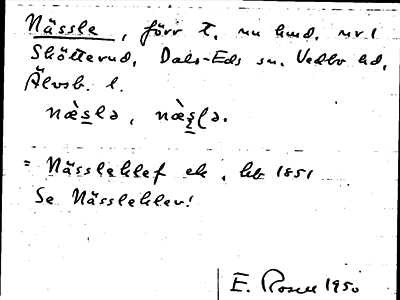 Nässle, förr t. nu hmd. nr. 1
Skötterud, Dals-Eds sn. Vedbo hd,
Älvsb. l.
næ̀s̠lə, næ̀s̠lə.
= Nässleklef ek, kb 1851
Se Nässleklev!
E. Rosell 1950